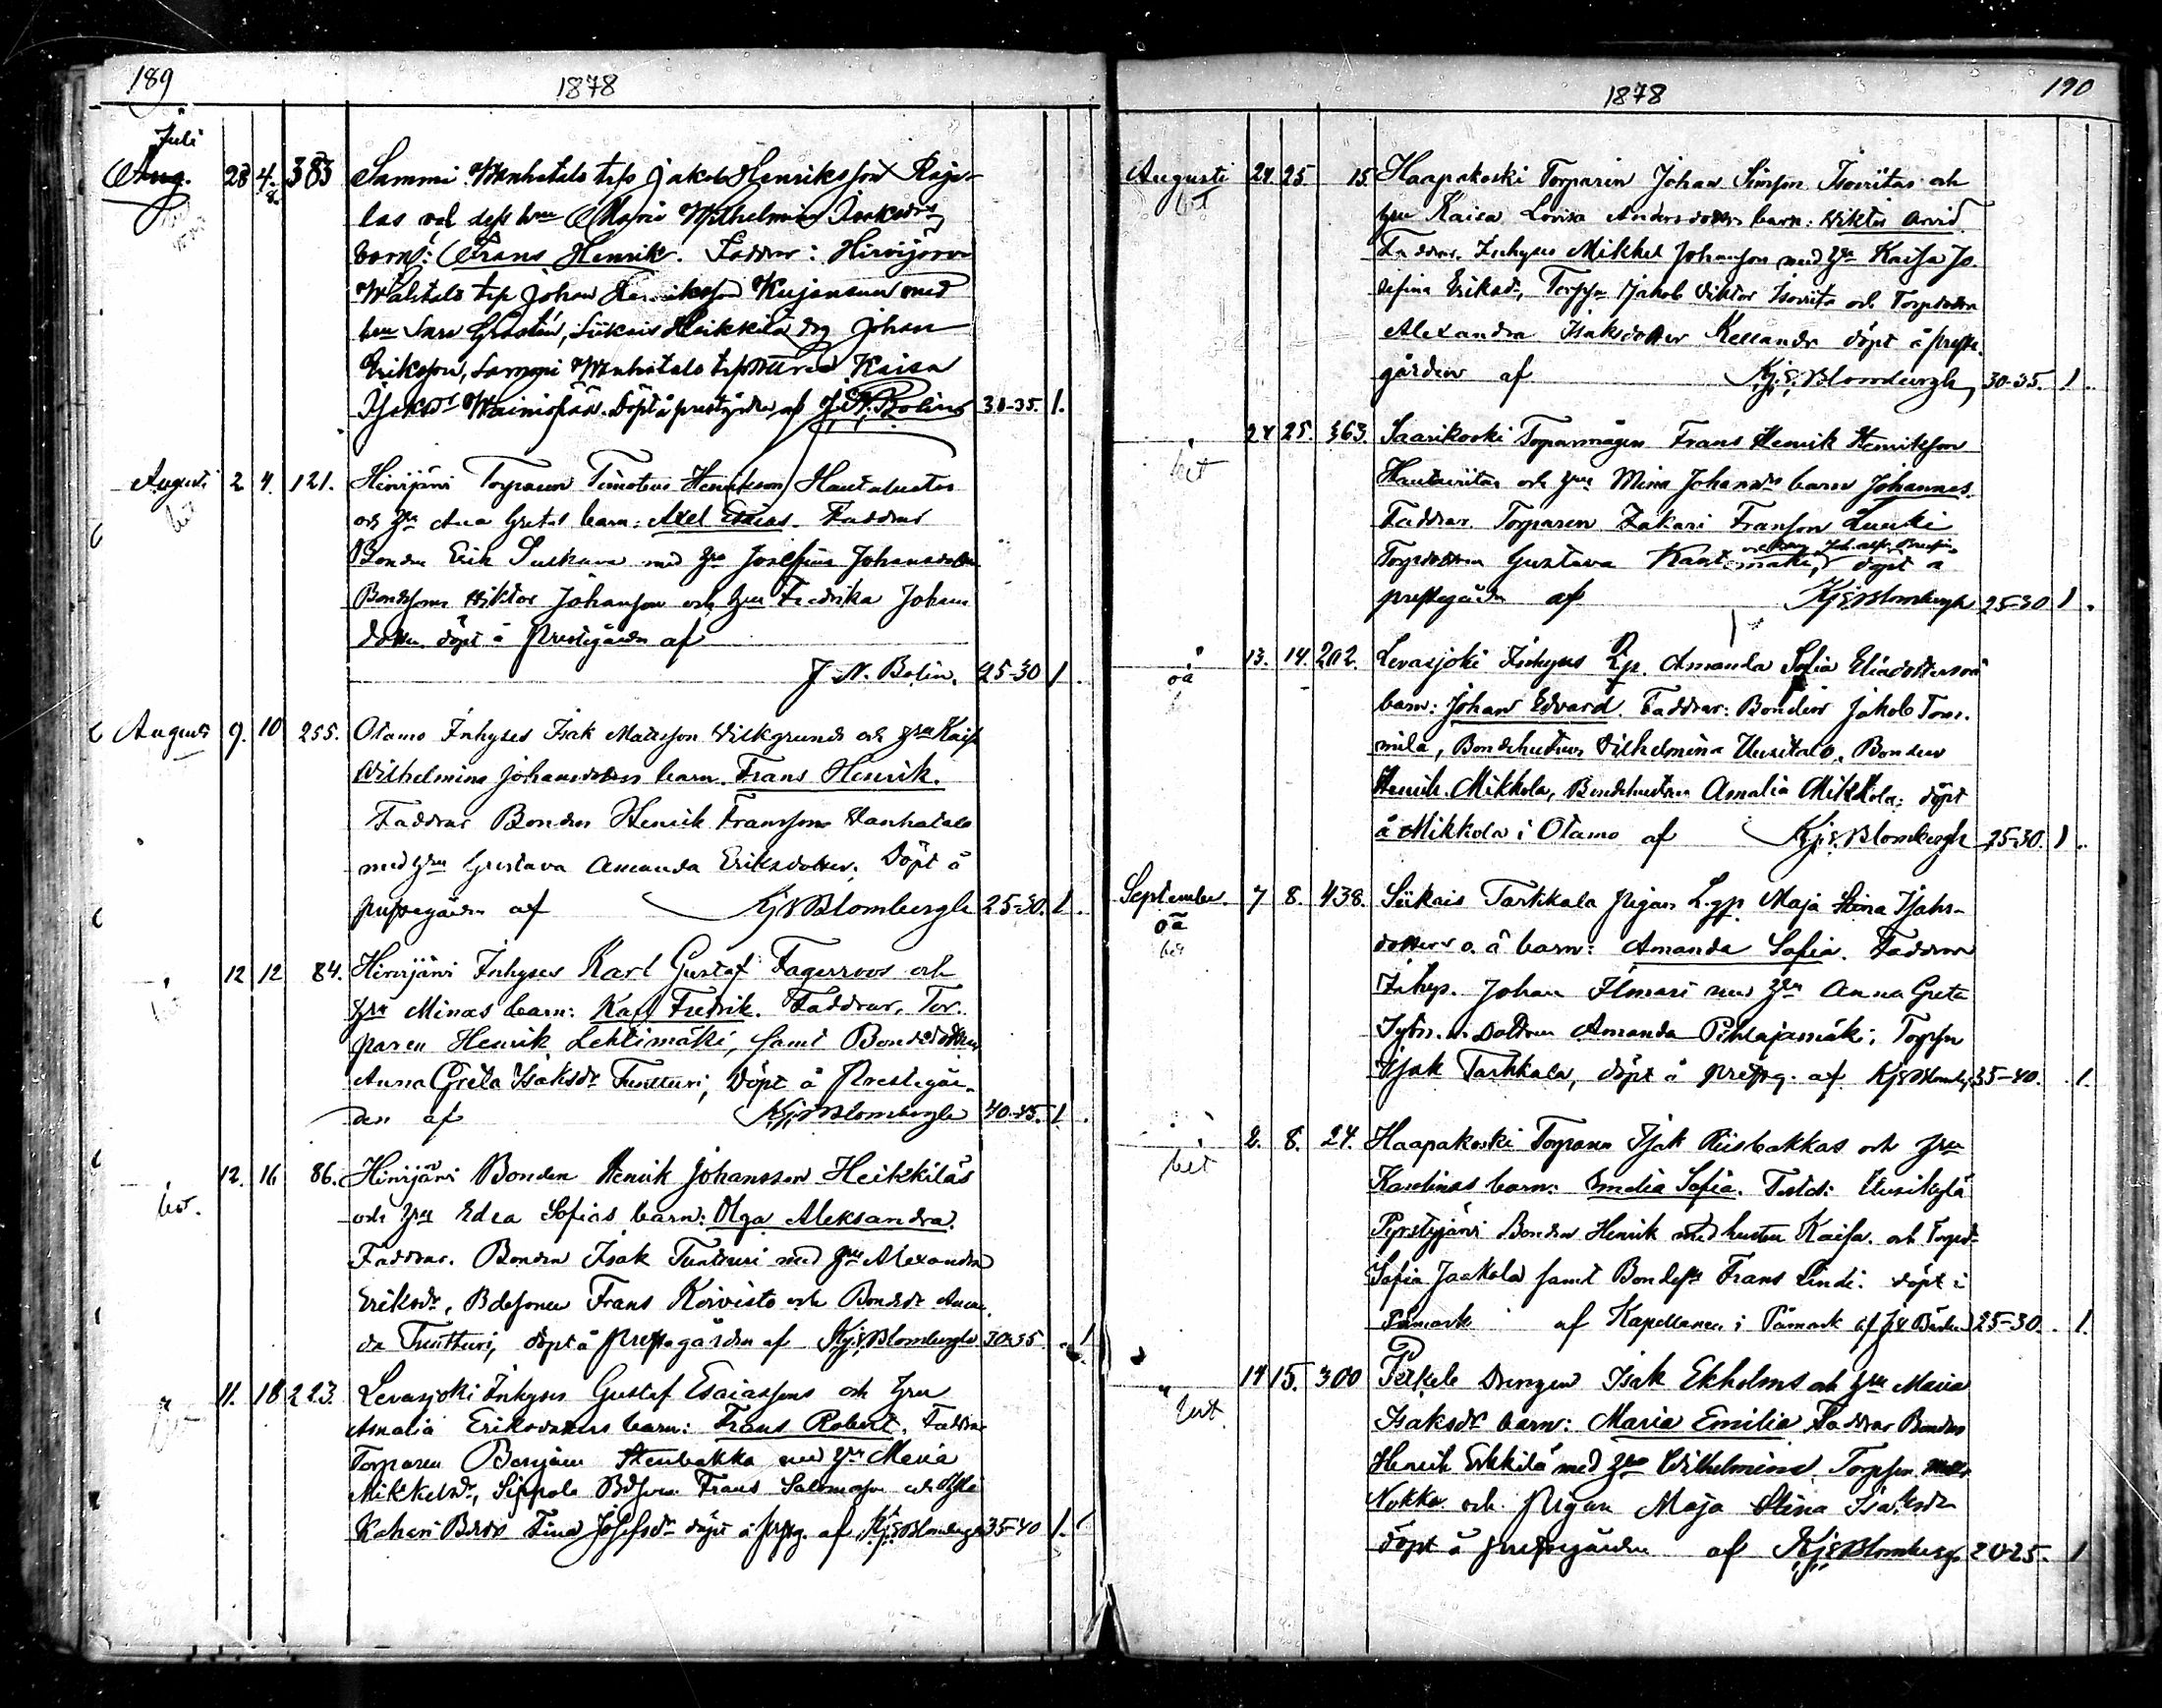 189
1878
Juli
Aug. 28 4. 383 Sammi Wanhatalo trp Jakob Henriksson Raja-
las och dess hu Maria Wilhelmina Isaksdrs
barn: Frans Henrik. Faddrar: Hirvijärvi
Wälitalo trp Johan Henriksson Kujansuu med
hu Sara Gröndn, Siikais Heikkilä drg Johan
Eriksson, Sammi Wanhatalo Kaisa
Isaksdr Döpt å prestgården af J. N. Bolin 30-35. 1.
Augusti 2 4. 121. Hirvijärvi Torparen Timoteus Henriksson Hautaluoter
och hu Ana Gretas barn: Axel Esaias. Faddrar
Bonden Erik Suskava med hu Josefina Johansdotter
Bondesonen Viktor Johansson och hu Fredrika Johans
dotter döpt å Prestgården af
J. N. Bolin. 25-30 1.
Augusti 9. 10 255. Otamo Inhyses Isak Matsson Vilkgrunds och hu Kajsa
Wilhelmina Johansdotters barn Frans Henrik.
Faddrar Bonden Henrik Fransson Vanhatalo
med hu Gustava Amanda Eriksdotter. Döpt å
prestgården af Kj. E. Blombergh 25-30. 1.
" 12 12 84. Hirvijärvi Inhyses Karl Gustaf Fagerroos och
hu Minas barn: Karl Fredrik. Faddrar, Tor-
paren Henrik Lehtimäki, samt Bondedottren
Anna Greta Isaksdr Tuntturi, Döpt å Prestegår-
den af Kj. E. Blombergh 40-45. 1.
bet. 12. 16 86. Hirvijärvi Bonden Henrik Johansson Heikkiläs
och hu Edea Sofias barn: Olga Aleksandra.
Faddrar. Bonden Isak Tuntturi med hu Alexandra
Eriksdr, Bdesonen Frans Koivisto och Bondedr Aman-
da Tuntturi, döpt å Prestegården af Kj. E. Blombergh 30-35 1
" 11. 18 223. Levasjoki Inhyses Gustaf Esaiassons och hu
Amalia Eriksdotters barn: Frans Robert. Faddrar
Torparen Benjam Stenbakka med hu Maria
Mikkelsdr, Sippola Bdsonen Frans Salomonsson och
Kahari Bdedr Fina Josefsdr döpt å prestg. af Kj. E. Blombergh 35-40 1.
1878
190
Augusti 24 25. 15. Haapakoski Torparen Johan Simson Isoviitas och
bet hu Kaisa Lovisa Andersdotters barn: Viktor Arvid.
Faddrar. Inhyses Mikkel Johansson med hu Kaisa Jo-
sefina Eriksdr, Torpson Jakob Viktor Isoviita och Torpdottren
Alexandra Isaksdotter döpt å preste-
gården af Kj. E. Blombergh, 30-35. 1.
" 24 25. 363. Saarikoski Torparmågen Frans Henrik Henriksson
bet Hautaviitas och hu Mina Johansdrs barn Johannes.
Faddrar. Torparen Zakari Fransson Luuki
Torpdottren Gustava Kantomäki, döpt å
prestegården af Kj. E. Blombergh 25-30 1.
" 13. 14. 202. Levasjoki Inhyses Lp. Amanda Sofia Eliedotters oä
oä barn: Johan Edvard. Faddrar: Bonden Jakob Tom-
mila, Bondehustrun Vilhelmina Uusitalo, Bonden
Henrik Mikkola, Bondehustrun Amalia Mikkola; döpt
å Mikkola i Otamo af Kj. E. Blombergh 25-30. 1.
September. 7 8. 438. Siikais Tarkkala pigan L.gp. Maja Stina Isaks-
oä dotters o. ä barn: Amanda Sofia. Faddrar
bet Inhys. Johan Ilmari med hu Anna Greta
Amanda Pihlajamäki; Torpsn
Isak Tarkkala, döpt å prestg. af Kj E Blombergh 35-40. 1.
" 2. 8. 24. Haapakoski Torparen Isak Riisbakkas och hu
bet Karolinas barn: Emelia Sofia. Test: Uusikylä
Bonden Henrik med hustru Kaisa. och Torpd
Sofia Jaakola samt Bondes Frans Lindi. döpt i
Påmark af Kapellanen i Påmark 25-30. 1.
" 14 15. 300 Drengen Isak Ekholms och hu Maria
bet Isaksdr barn: Maria Emilia. Faddrar Bonden
Henrik Erkkilä med hu Wilhelmina. Torpson
Nokka och Pigan Maja Stina Isaksdr
döpt å prestegården af Kj E Blombergh 20-25. 1